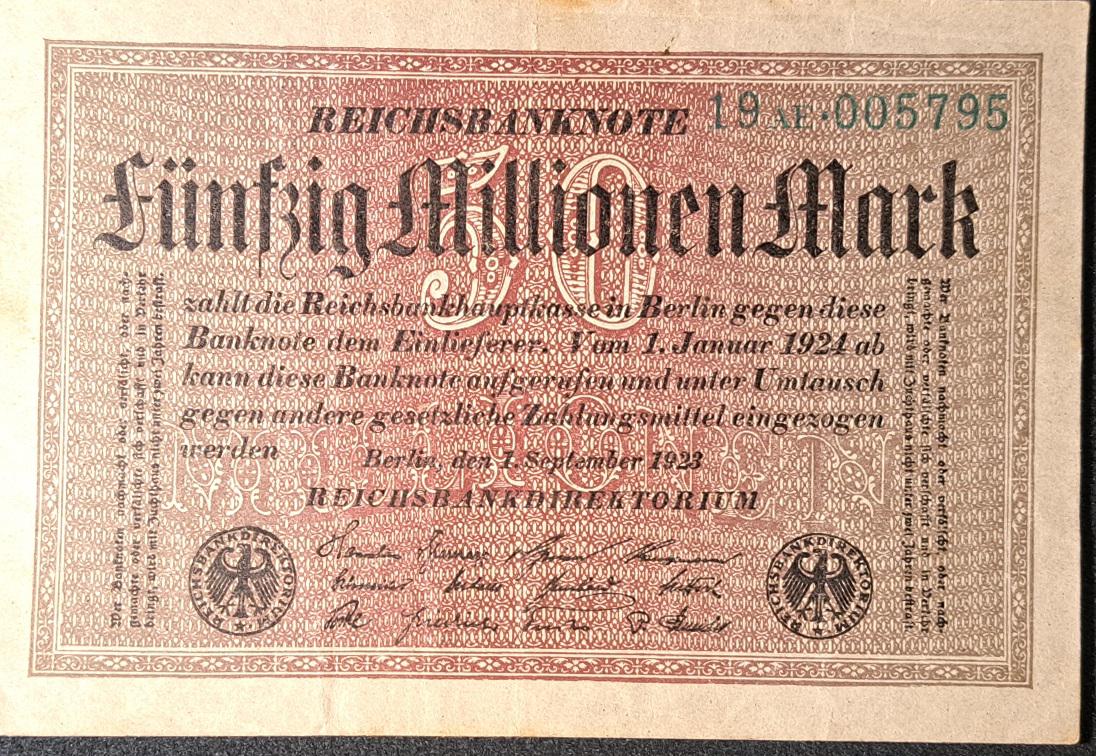 REICHSBANKNOTE
19 AE·005795
50
Fünfzig Millionen Mark
zahlt die Reichsbankhauptkasse in Berlin gegen diese
Banknote dem Einlieferer. Vom 1. Januar 1924 ab
kann diese Banknote aufgerufen und unter Umtausch
gegen andere gesetzliche Zahlungsmittel eingezogen
werden
MILLIONEN
Berlin, den 1. September 1923
REICHSBANKDIREKTORIUM
Wer Banknoten nachmacht oder verfälscht, oder nach-
gemachte oder verfälschte sich verschafft und in Verkehr
bringt, wird mit Zuchthaus nicht unter zwei Jahren bestraft.
Wer Banknoten nachmacht oder verfälscht oder nach-
gemachte oder verfälschte sich verschafft und in Verkehr
bringt, wird mit Zuchthaus nicht unter zwei Jahren bestraft.
REICHSBANKDIREKTORIUM
REICHSBANKDIREKTORIUM